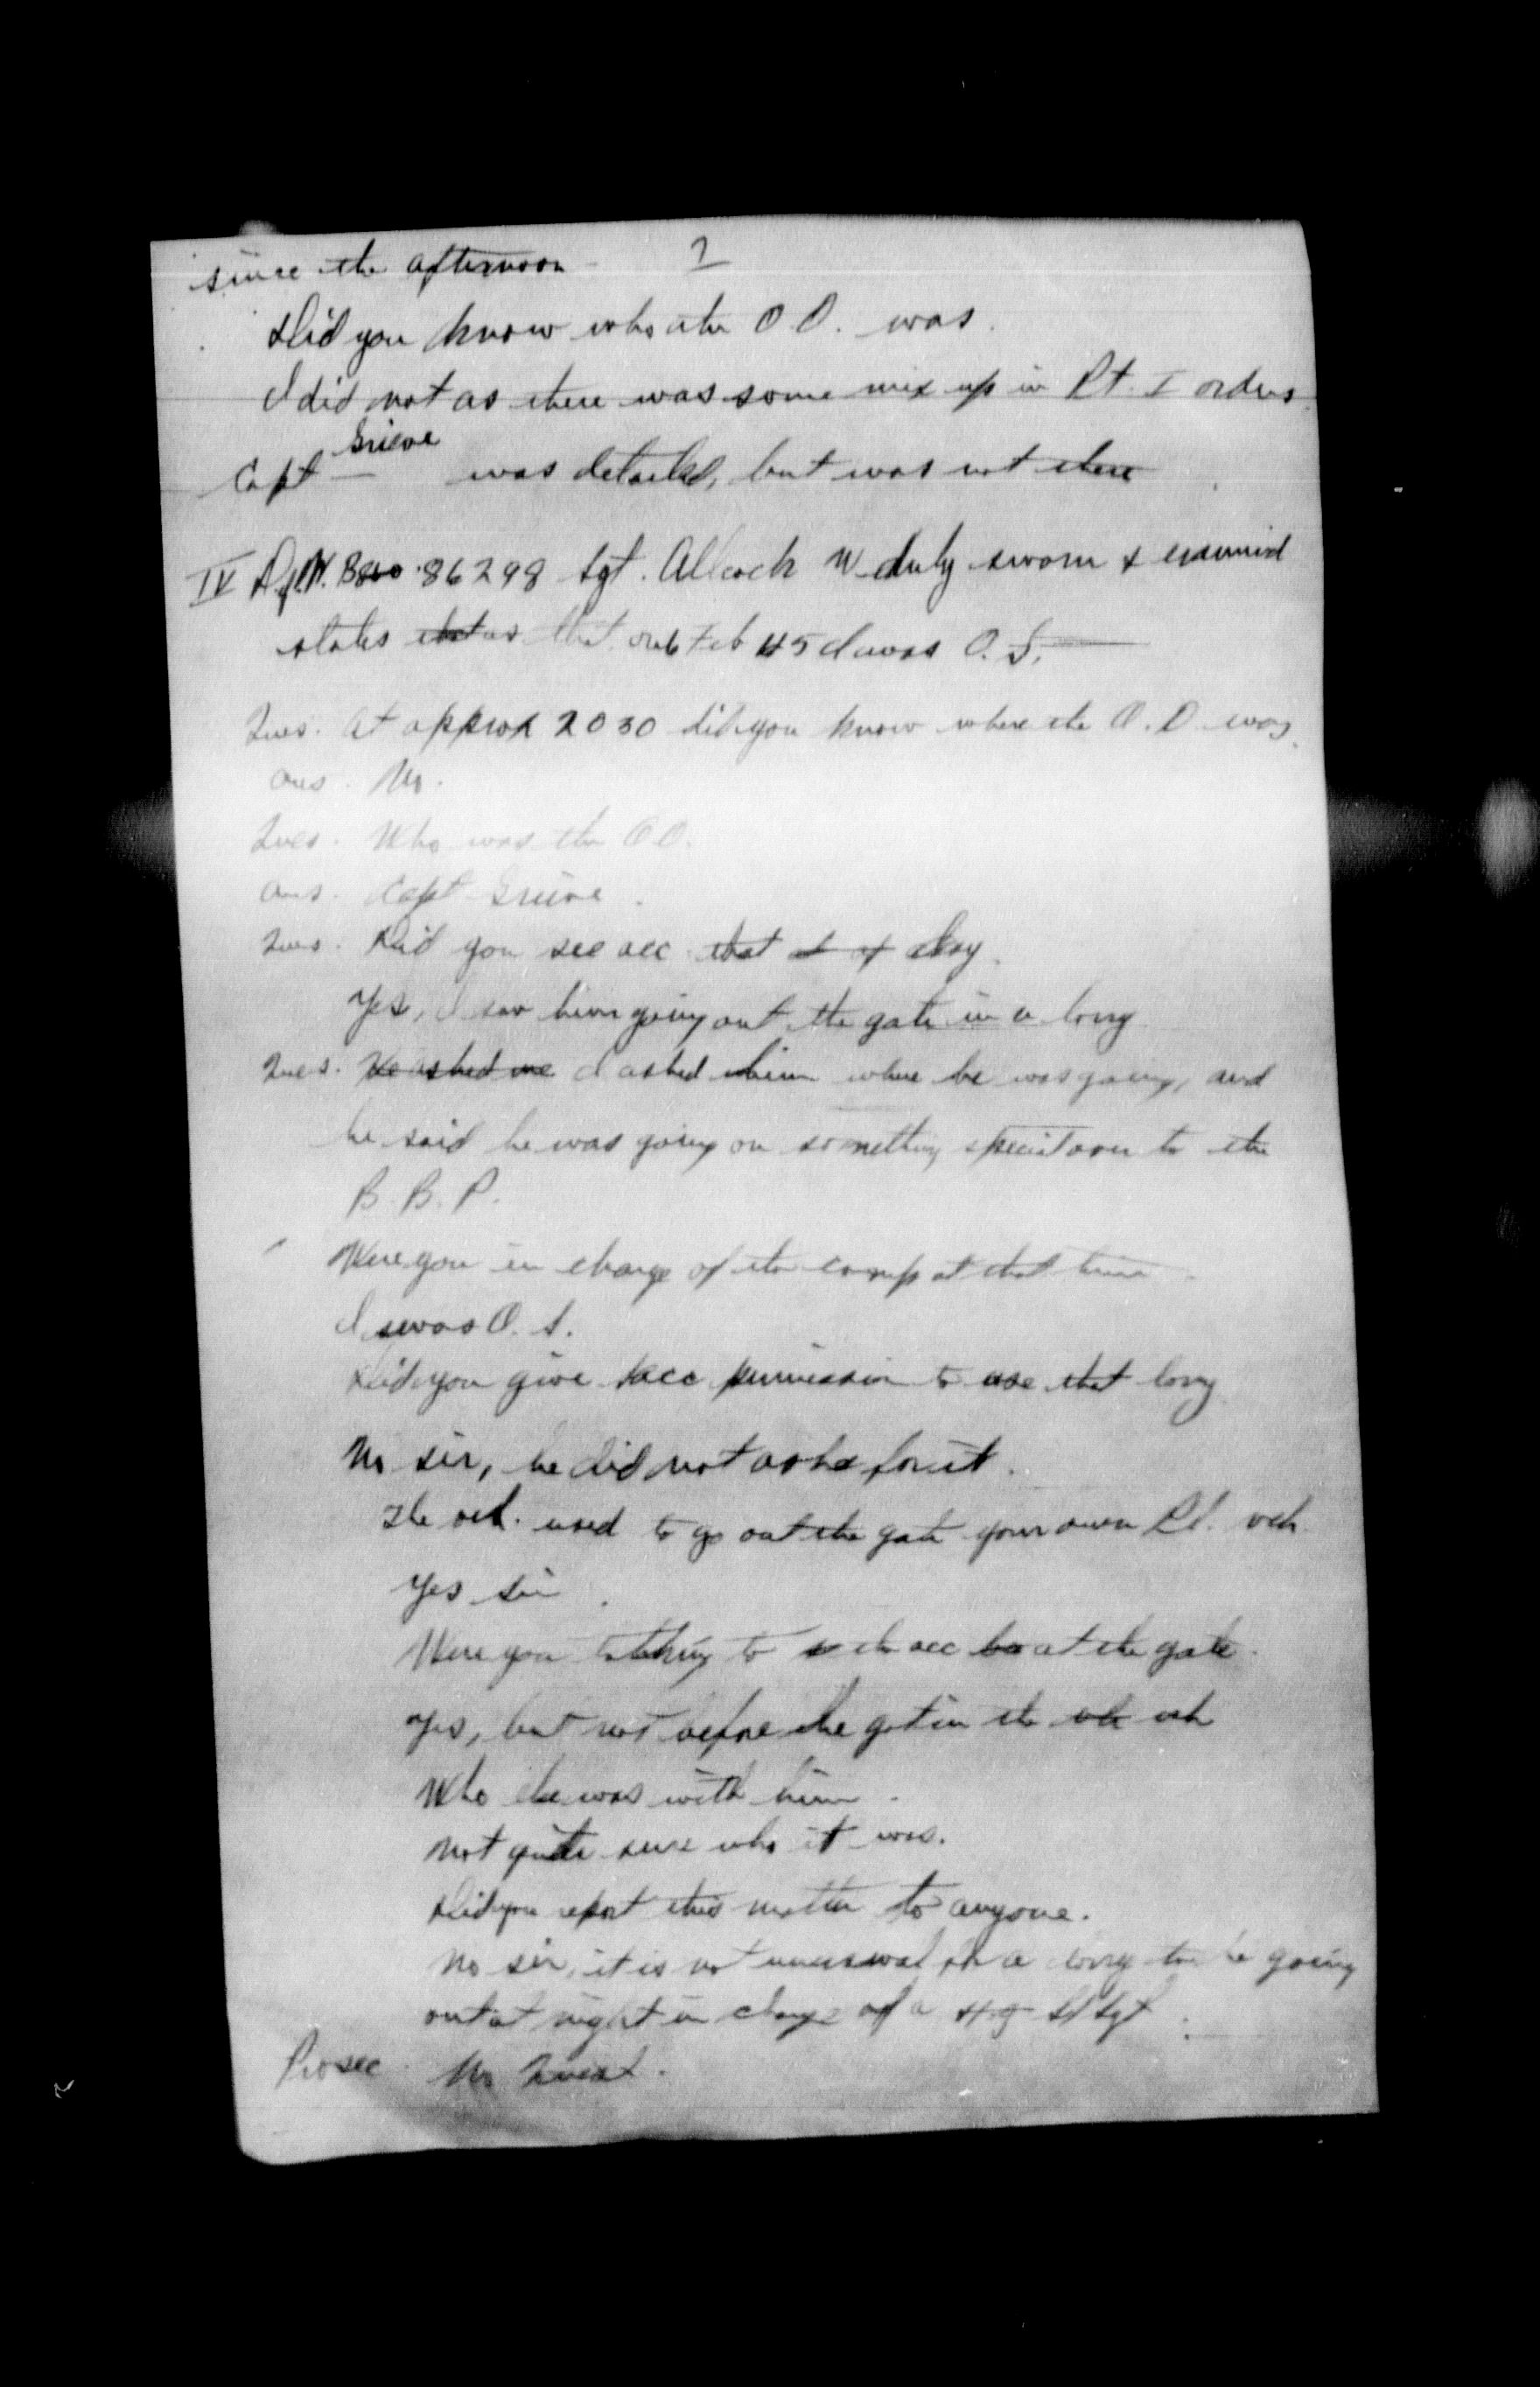 since the afternoon 2
Did you know who the O O. was.
I did not as there was some mix up in Pt. I orders.
Grieve
Capt — was detailed, but was not there
IV 86298 Sgt. Allcock W duly sworn & examined
states that on 6 Feb 45 I was O. S.
Ques. At approx 2030 did you know where the O. O. was.
ans. No.
Ques. Who was the O O.
ans. Capt Grieve.
Ques. Did you see acc that day.
Yes, I saw him going out the gate in a lorry
Ques. He asked me I asked him where he was going, and
he said he was going on something special over to the
B. B. P.
Were you in charge of the camp at that time.
I was O. S.
Did you give acc permission to use that lorry
No sir, he did not ask for it.
The veh. used to go out the gate your own Pl. veh.
Yes sir.
Were you talking to the acc at the gate.
Yes, but not before he got in the veh
Who else was with him.
Not quite sure who it was.
Did you report this matter to anyone.
No sir, it is not unusual for a lorry to be going
out at night in charge of a S/Sgt.
Prosec. No Quest.